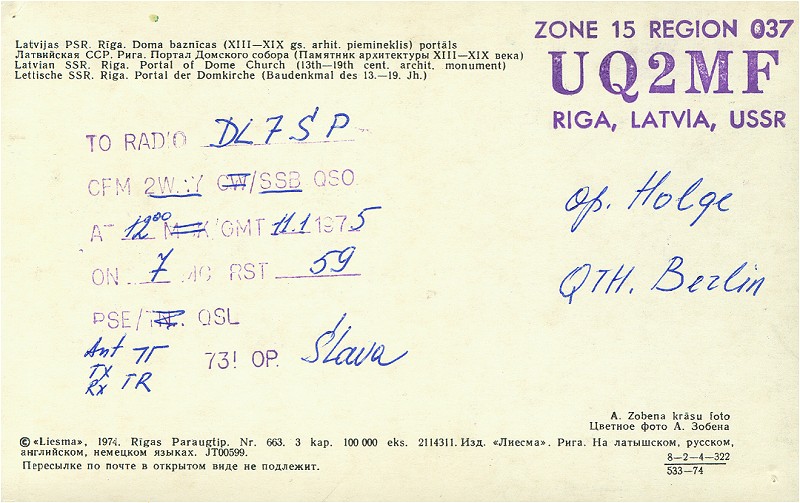 ZONE 15 REGION 037
UQ2MF
RIGA, LATVIA, USSR
Latvijas PSR. Rīga. Doma baznīcas (XIII—XIX gs. arhit. piemineklis) portāls
Латвийская ССР. Рига. Портал Домского собора (Памятник архитектуры XIII—XIX века)
Latvian SSR. Riga. Portal of Dome Church (13th—19th cent. archit. monument)
Lettische SSR. Riga. Portal der Domkirche (Baudenkmal des 13.—19. Jh.)
TO RADIO DL7SP
CFM 2WAY CW/SSB QSO
AT 12⁰⁰ MSK/GMT 11.1 1975
ON 7 MC RST 59
PSE/TNX QSL
Ant TT
TX
RX TR
73! OP. Slava
op. Holge
QTH. Berlin
A. Zobena krāsu foto
Цветное фото А. Зобена
© «Liesma», 1974. Rīgas Paraugtip. Nr. 663. 3 kap. 100 000 eks. 2114311. Изд. «Лиесма». Рига. На латышском, русском,
английском, немецком языках. JT00599.
Пересылке по почте в открытом виде не подлежит.
8—2—4—322
533—74